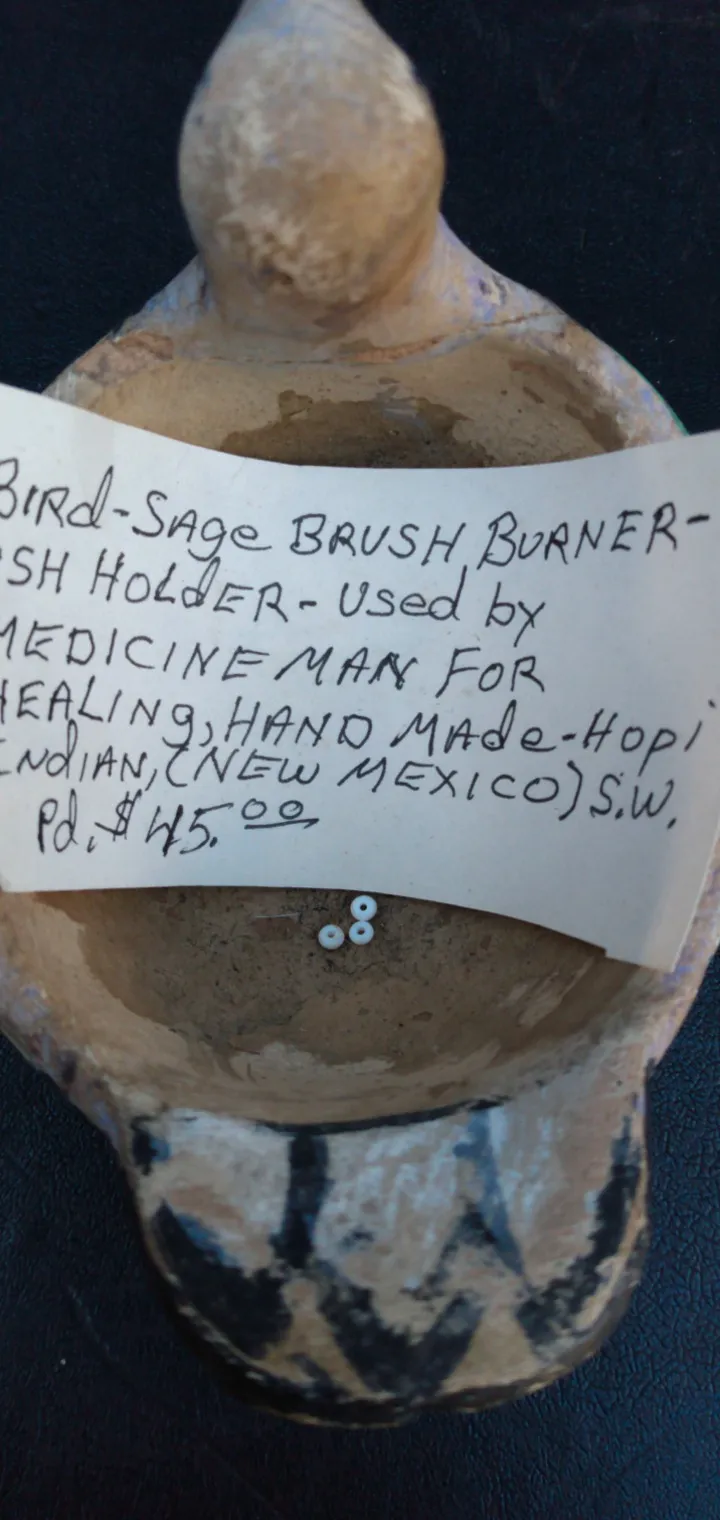 BIRd-SAge BRUSH BURNER-
SH HOLdER- Used by
MEDICINE MAN FOR
HEALINg, HAND MAde-Hopi
INdIAN, (NEW MEXICO) S.W.
Pd. $45.00